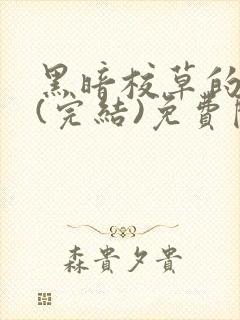 黑暗校草的
(完結)免費
森貴夕貴